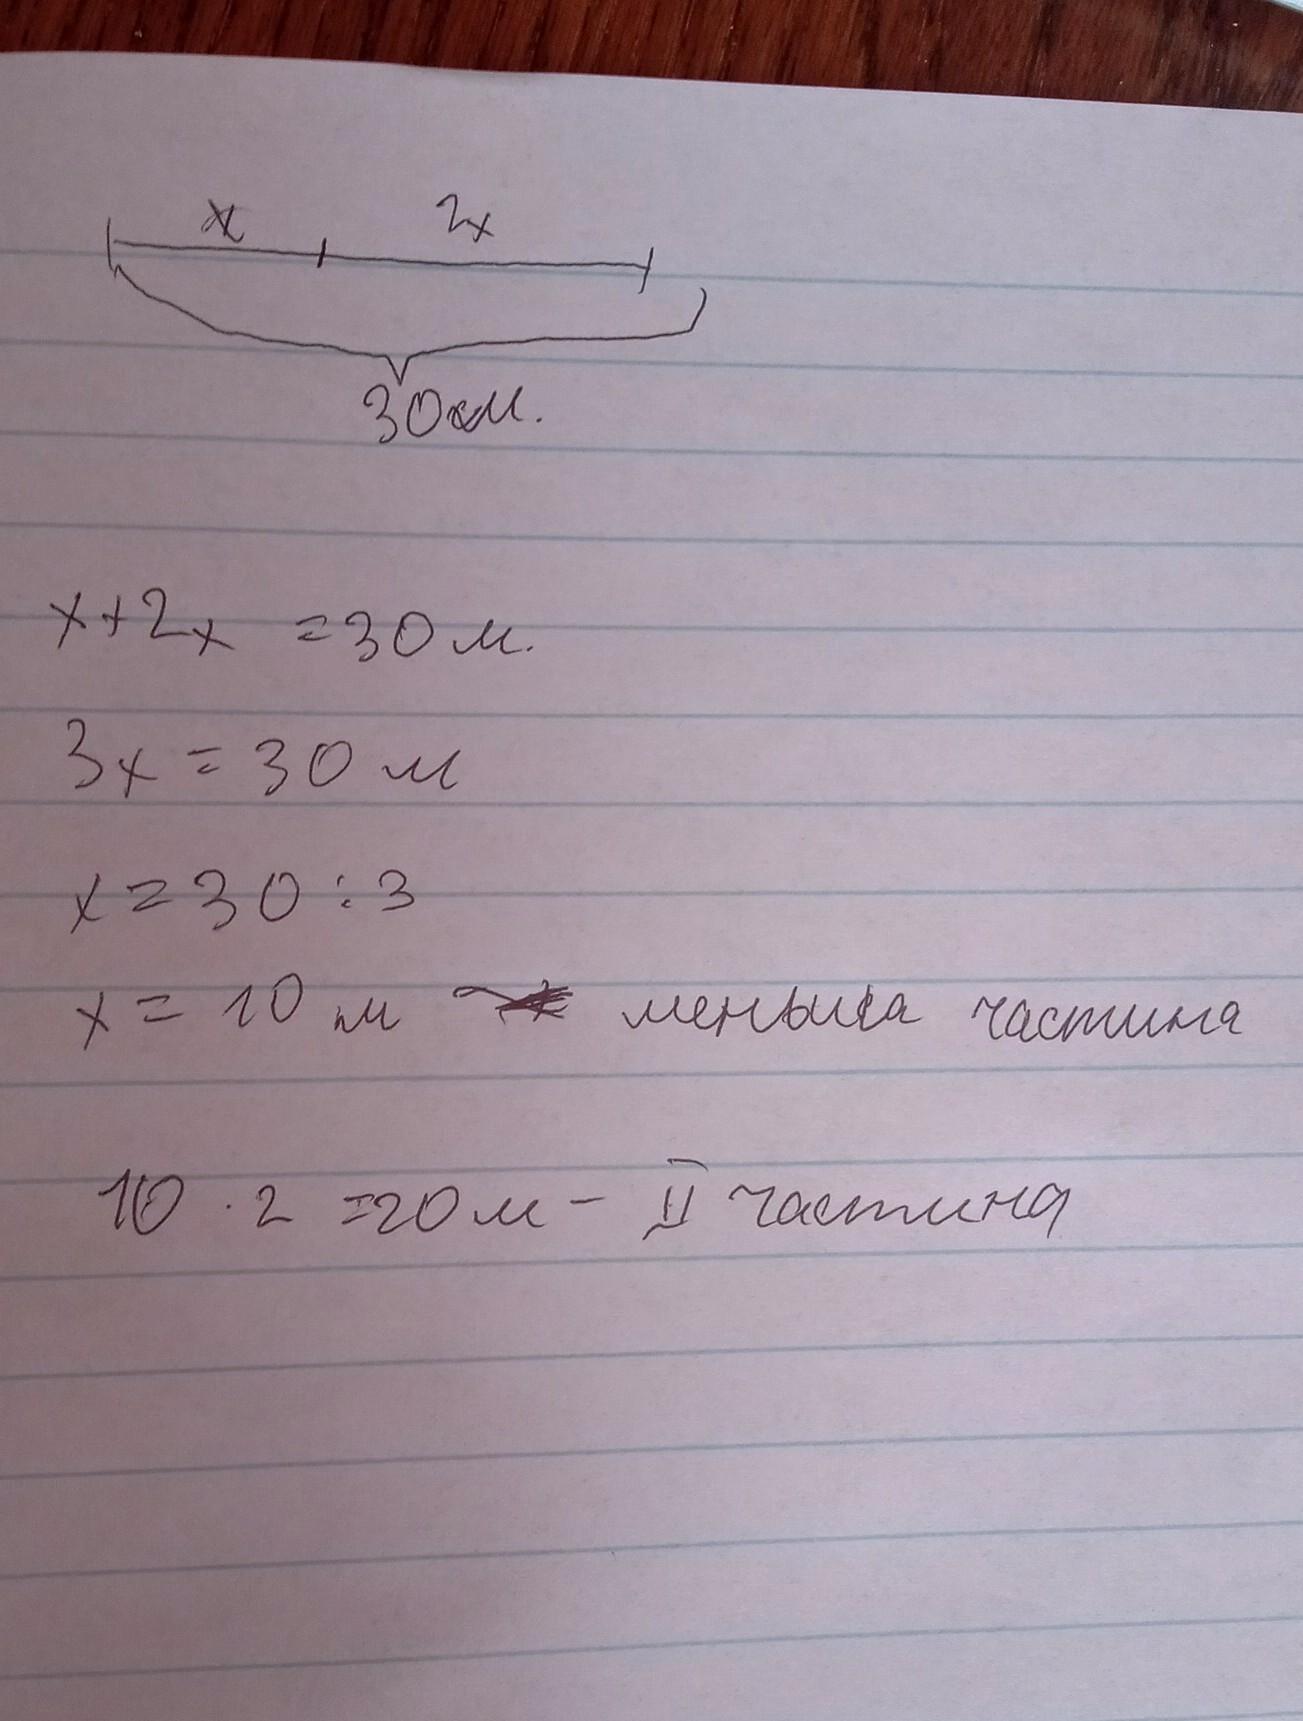 x 2x
30 м.
x+2x = 30 м.
3x = 30 м
x = 30 : 3
x = 10 м менша частина
10 · 2 = 20 м - II частина